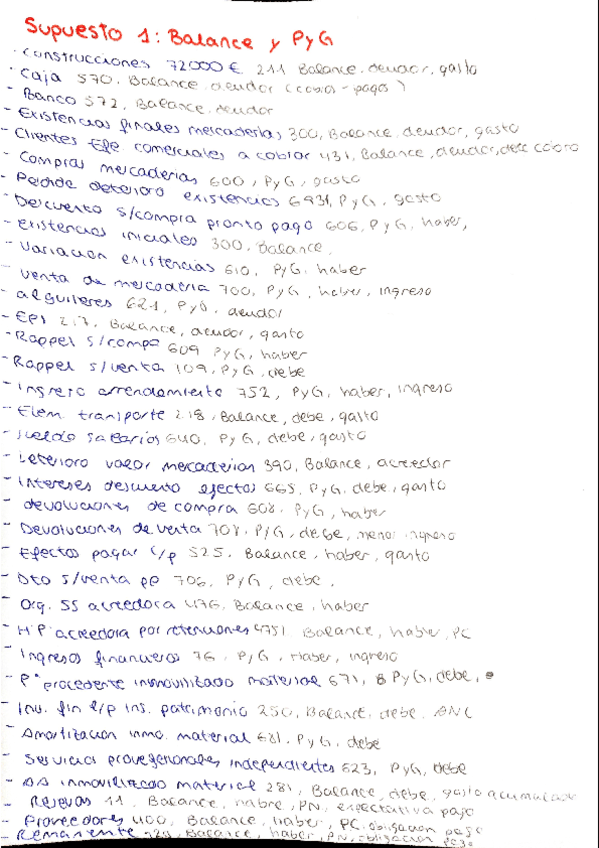 Supuesto 1: Balance y PyG
· Construcciones 72000 € 211 Balance, deudor, gasto
- Caja 570, Balance, deudor (cobros - pagos)
- Banco 572, Balance, deudor
- Existencias finales mercaderías 300, Balance, deudor, gasto
- Clientes Efe comerciales a cobrar 431, Balance, deudor, derc cobro
- Compras mercaderías 600, PyG, gasto
- Pérdida deterioro existencias 6931, PyG, gasto
- Descuento s/compra pronto pago 606, PyG, haber,
- Existencias iniciales 300, Balance,
- Variación existencias 610, PyG, haber
- Venta de mercadería 700, PyG, haber, ingreso
- alquileres 621, PyG, deudor
- EPI 217, Balance, deudor, gasto
- Rappel s/compa 609 PyG, haber
- Rappel s/venta 109, PyG, debe
- Ingreso arrendamiento 752, PyG, haber, ingreso
- Elem. transporte 218, Balance, debe, gasto
- Sueldo salarios 640, PyG, debe, gasto
- Deterioro valor mercaderías 390, Balance, acreedor
- Intereses descuento efectos 665, PyG, debe, gasto
- devoluciones de compra 608, PyG, haber
- Devoluciones de venta 708, PyG, debe, menor ingreso
- Efectos pagar c/p 525, Balance, haber, gasto
- Dto s/venta pp 706, PyG, debe.
- Org. SS acreedora 476, Balance, haber
- H.P. acreedora por retenciones 4751 Balance, haber, PC
- Ingresos financieros 76, PyG, Haber, ingreso
- Pº procedente inmovilizado material 671, PyG, debe,
- Inv. fin l/p ins. patrimonio 250, Balance, debe, ANC
- Amortización inmo. material 681, PyG, debe
- Servicios profesionales independientes 623, PyG, debe
- AA inmovilizado material 281, Balance, debe, gasto acumulado
- Reservas 11, Balance, habre, PN, expectativa pago
- Proveedores 400, Balance, haber, PC, obligación pago
- Remanente 120, Balance, haber, PN, obligación pago